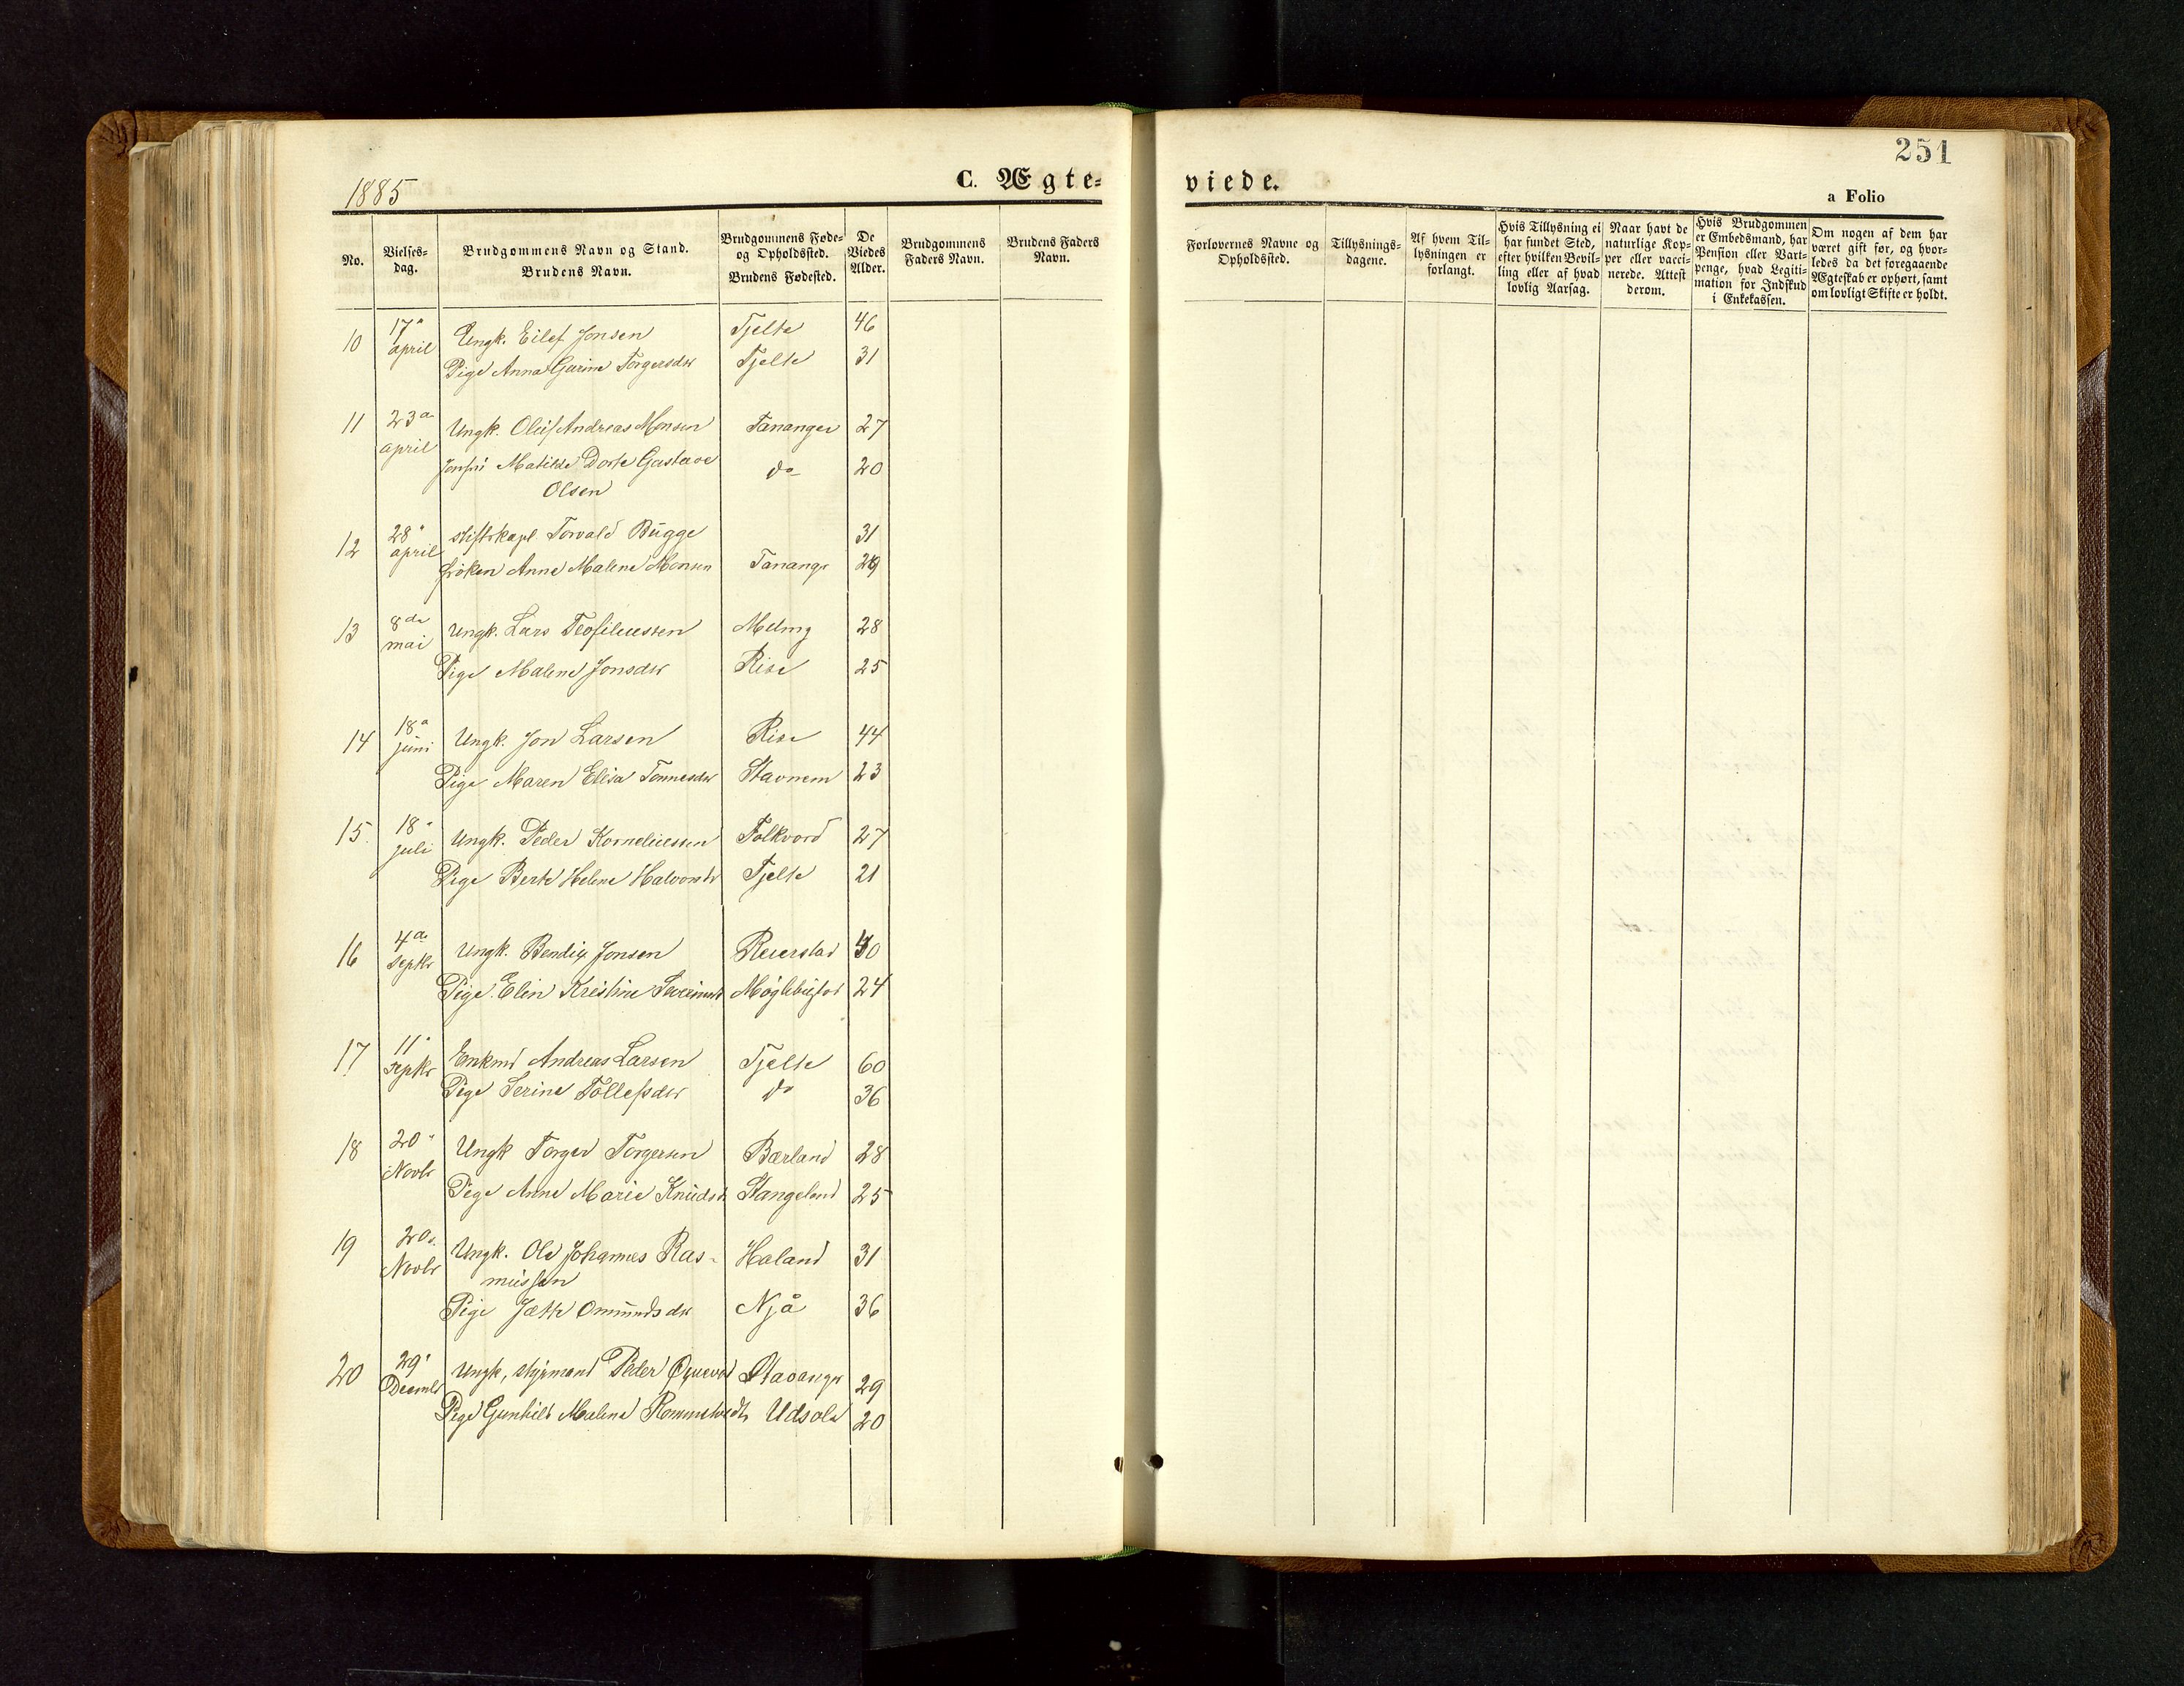 251
C. Ægte=
viede.
a Folio
1885
No.
Vielses-
dag.
Brudgommens Navn og Stand.
Brudens Navn.
Brudgommens Føde-
og Opholdssted.
Brudens Fødested.
De
Viedes
Alder.
Brudgommens
Faders Navn.
Brudens Faders
Navn.
Forlovernes Navne og
Opholdssted.
Tillysnings-
dagene.
Af hvem Til-
lysningen er
forlangt.
Hvis Tillysning ei
har fundet Sted,
efter hvilken Bevil-
ling eller af hvad
lovlig Aarsag.
Naar havt de
naturlige Kop-
per eller vacci-
nerede. Attest
derom.
Hvis Brudgommen
er Embedsmand, har
Pension eller Vart-
penge, hvad Legiti-
mation for Indskud
i Enkekassen.
Om nogen af dem har
været gift før, og hvor-
ledes da det foregaaende
Ægteskab er ophørt, samt
om lovligt Skifte er holdt.
10 17 april Ungk. Eilef Jonsen Tjelte 46
Pige Anna Garine Torgersdtr Tjelte 31
11 23 april Ungk. Oluf Andreas Monsen Tananger 27
Matilde Dorte Gustava do 20
Olsen
12 28 april stiftskapl Torvald Bugge 31
frøken Anne Malene Monsen Tananger
13 8de mai Ungk. Lars Teofiliussen Meling 28
Pige Malene Jonsdtr Rise 25
14 18 juni Ungk. Jon Larsen Rise 44
Pige Maren Elisa Tønnesdtr Stavnem 23
15. 18 juli Ungk. Peder Korneliussen Folkvord 27
Pige Berte Helene Halvorsdtr Tjelte 21
16 4 Septbr Ungk. Bendix Jonsen Reierstad
Pige Elin Kristine Severinsdtr 24
17 11 Septbr Enkmd Andreas Larsen Tjelte 60
Pige Serine Tollefsdtr do 36
18 20 Novbr Ungk Torger Torgersen Bærland 28
Pige Anne Marie Knudsdtr Stangeland 25
19 20 Novbr Ungk. Ole Johannes Ras- Haland 31
mussen
Pige Jætte Omundsdtr Njå 36
20 29 Decmbr Ungk, styrmand Peder Stavanger 29
Pige Gunhild Malene Rommetvedt Udsola 20